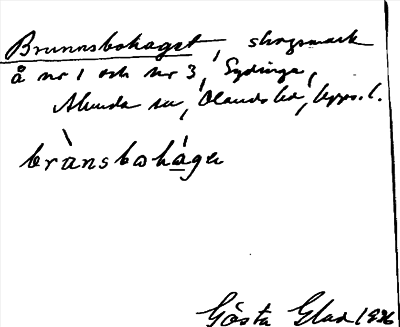 Brunnsbohaget, skogsmark
å nr 1 och nr 3, Gydinge,
Alunda sn, Olands hd, Upps. l.
brànsbohágen
Gösta Glad 1936